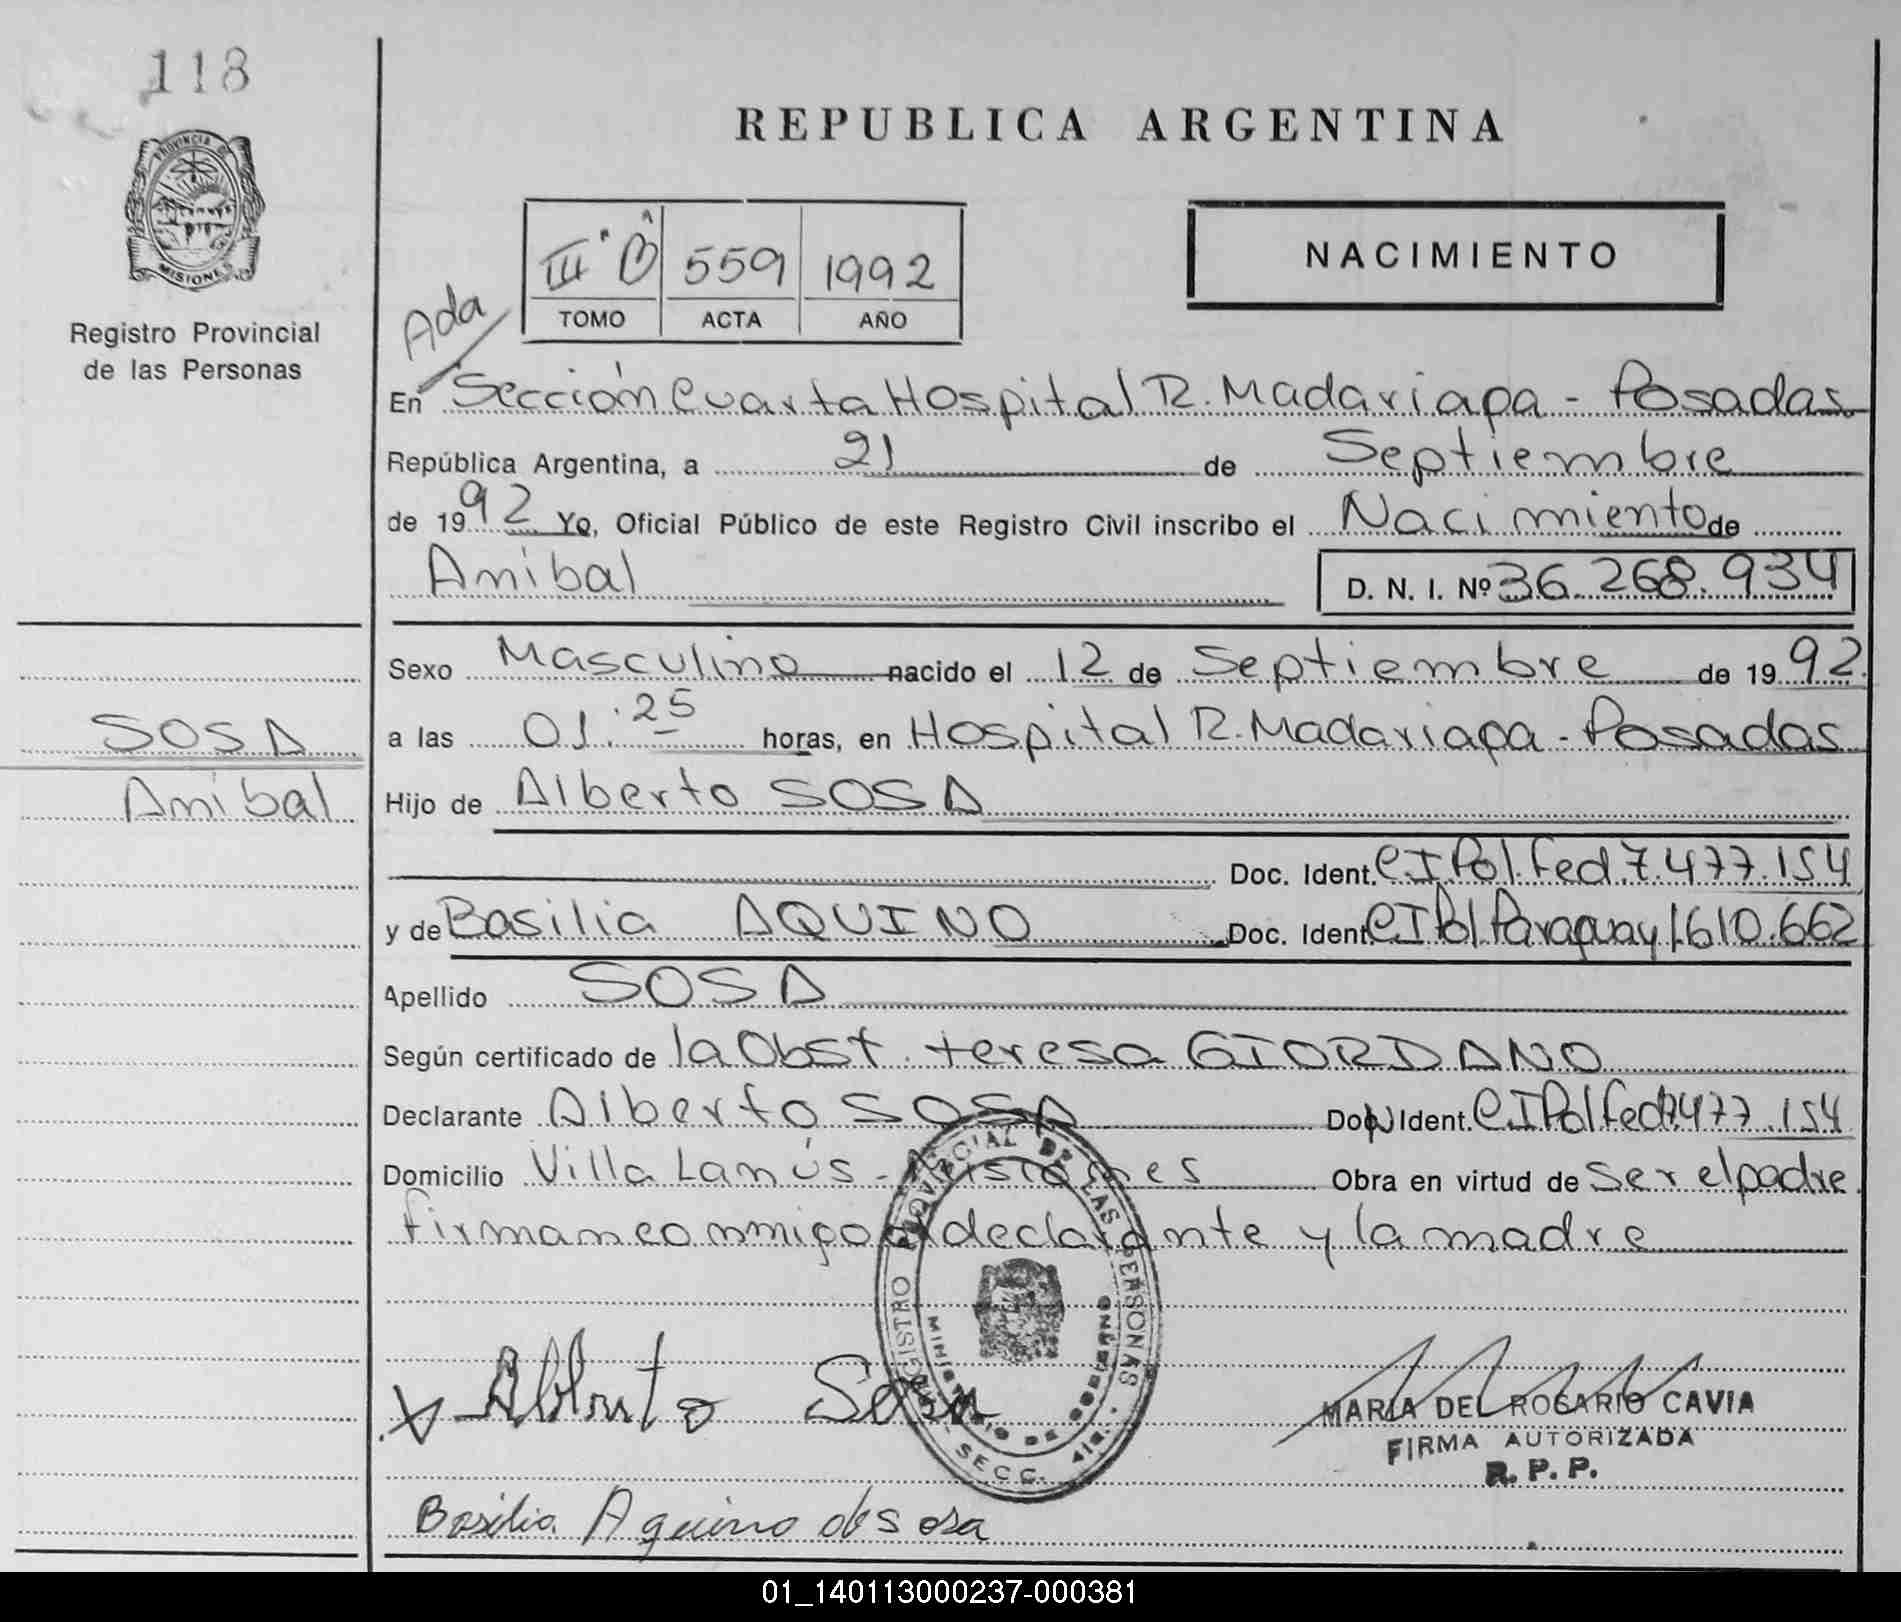 118
PROVINCIA DE
MISIONES
Registro Provincial
de las Personas
REPUBLICA ARGENTINA
III ª B 559 1992
TOMO ACTA AÑO
NACIMIENTO
Ada
En Sección Cuarta Hospital R. Madariaga - Posadas
República Argentina, a 21 de Septiembre
de 1992 Yo, Oficial Público de este Registro Civil inscribo el Nacimiento de
Anibal D. N. I. Nº 36.268.934
Sexo Masculino nacido el 12 de Septiembre de 1992.
a las 01:25 horas, en Hospital R. Madariaga - Posadas
SOSA
Anibal
Hijo de Alberto SOSA
Doc. Ident. CI Pol. Fed 7.477.154
y de Basilia AQUINO Doc. Ident. CI Pol Paraguay 1.610.662
Apellido SOSA
Según certificado de la Obst. teresa GIORDANO
Declarante Alberto SOSA Doc. Ident. CI Pol Fed 7.477.154
Domicilio Villa Lanús - Misiones Obra en virtud de Ser el padre
firman conmigo el declarante y la madre
REGISTRO PROVINCIAL DE LAS PERSONAS
MINISTERIO DE GOBIERNO
SECC. 4ta.
Alberto Sosa
MARIA DEL ROSARIO CAVIA
FIRMA AUTORIZADA
R. P. P.
Basilia Aquino de sosa
01_140113000237-000381